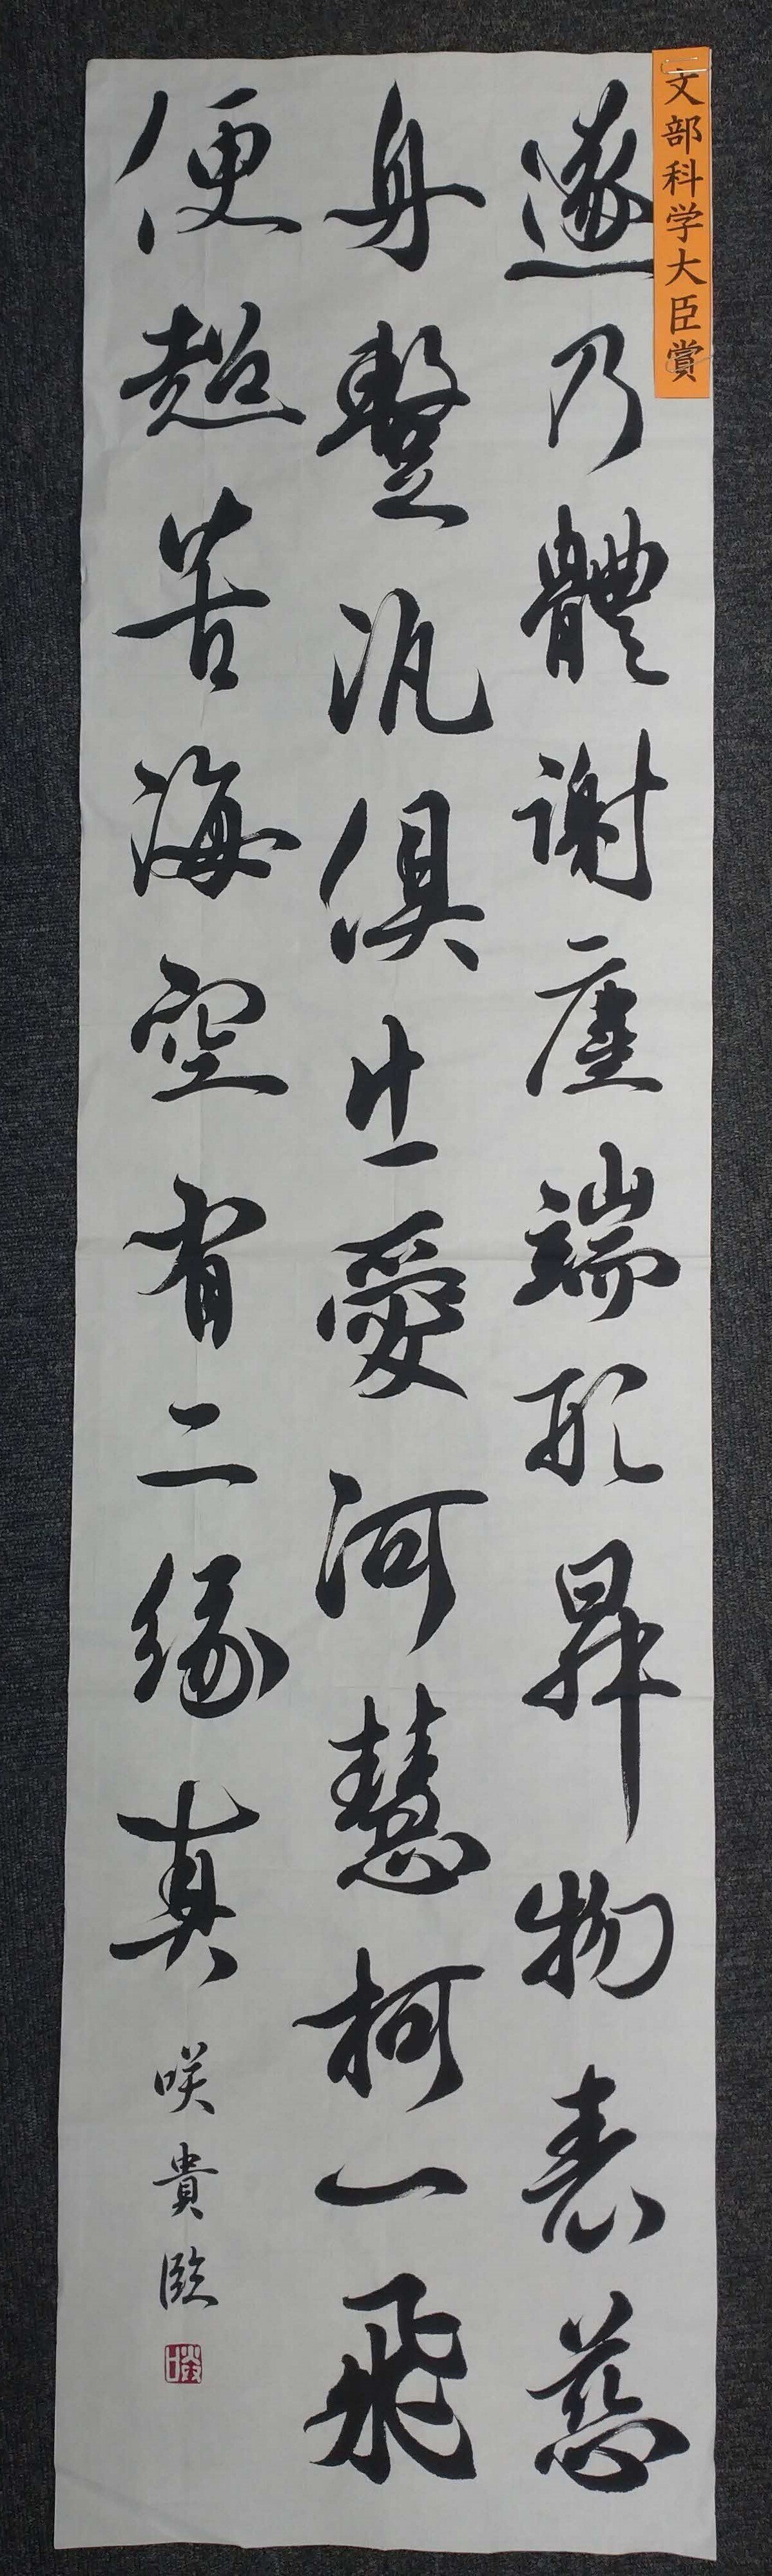 文部科学大臣賞
遂乃體謝塵端形昇物表慈
舟蹔汎俱生愛河慧柯一飛
便超苦海空有二緣真
咲貴臨